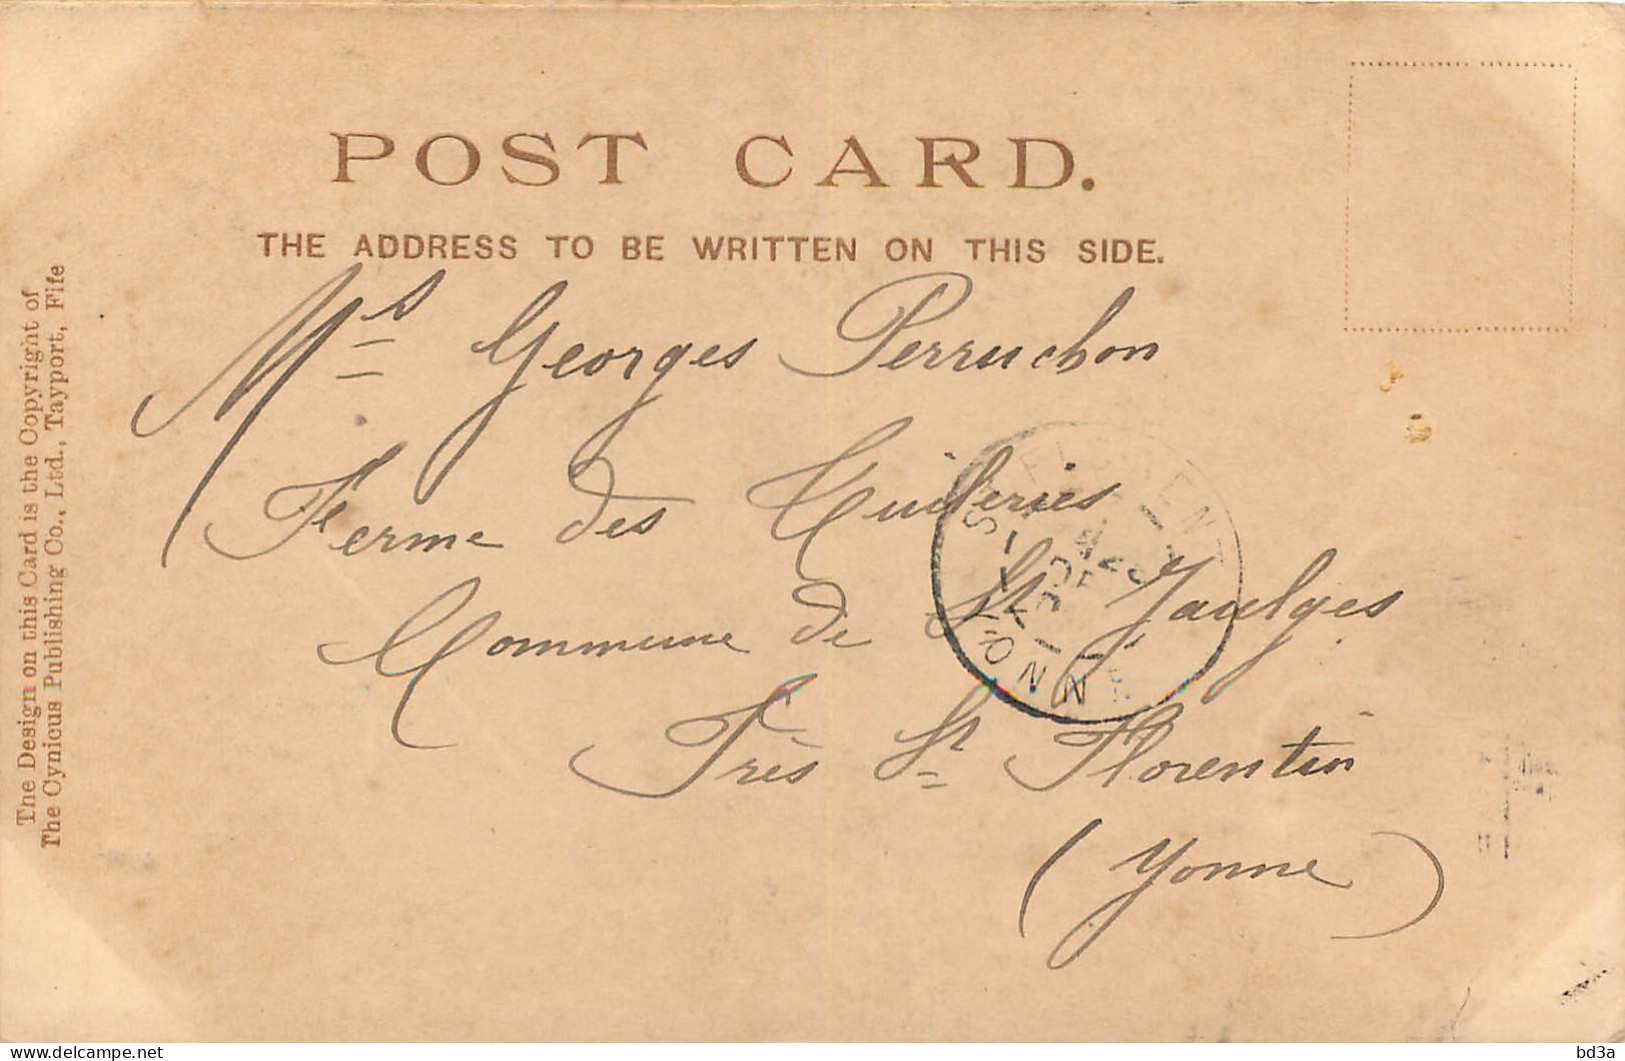 POST CARD.
THE ADDRESS TO BE WRITTEN ON THIS SIDE.
Mrs Georges Perruchon
Ferme des Tuileries
Commune de St Jaulges
Près St Florentin
(Yonne)
ST FLORENTIN
YONNE
The Design on this Card is the Copyright of
The Cynicus Publishing Co., Ltd., Tayport, Fife
www.delcampe.net
bd3a